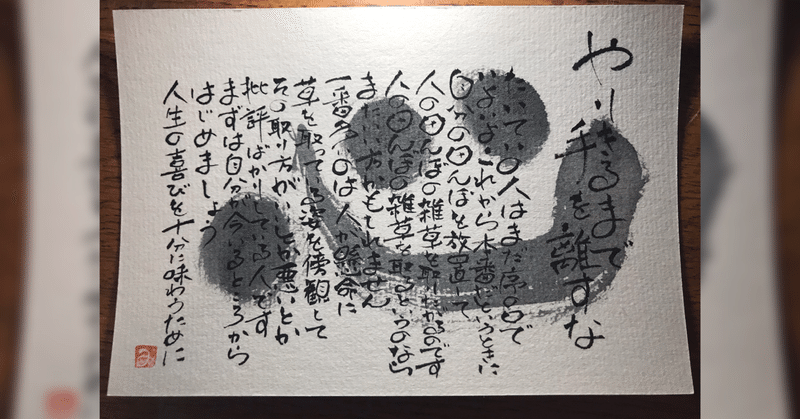 やりきるまで
手を離すな
たいていの人はまだ序の口で
いよいよこれから本番だというときに
自分の田んぼを放り出して
人の田んぼの雑草を取りたがるのです
人の田んぼの雑草を取るというのなら
まだいい方かもしれません
一番多いのは人が懸命に
草を取っている姿を傍観して
その取り方がいいとか悪いとか
批評ばかりしている人です
まずは自分が今いるところから
はじめましょう
人生の喜びを十分に味わうために